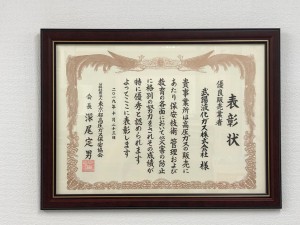 表彰状
優良販売業者
武陽液化ガス株式会社 様
貴事業所は高圧ガスの販売に
あたり保安技術 管理および
教育の各面において災害の防止
に格別の努力をされその成績が
特に優秀と認められます
よってここに表彰します
二〇一九年十月二十三日
会長 深尾定男